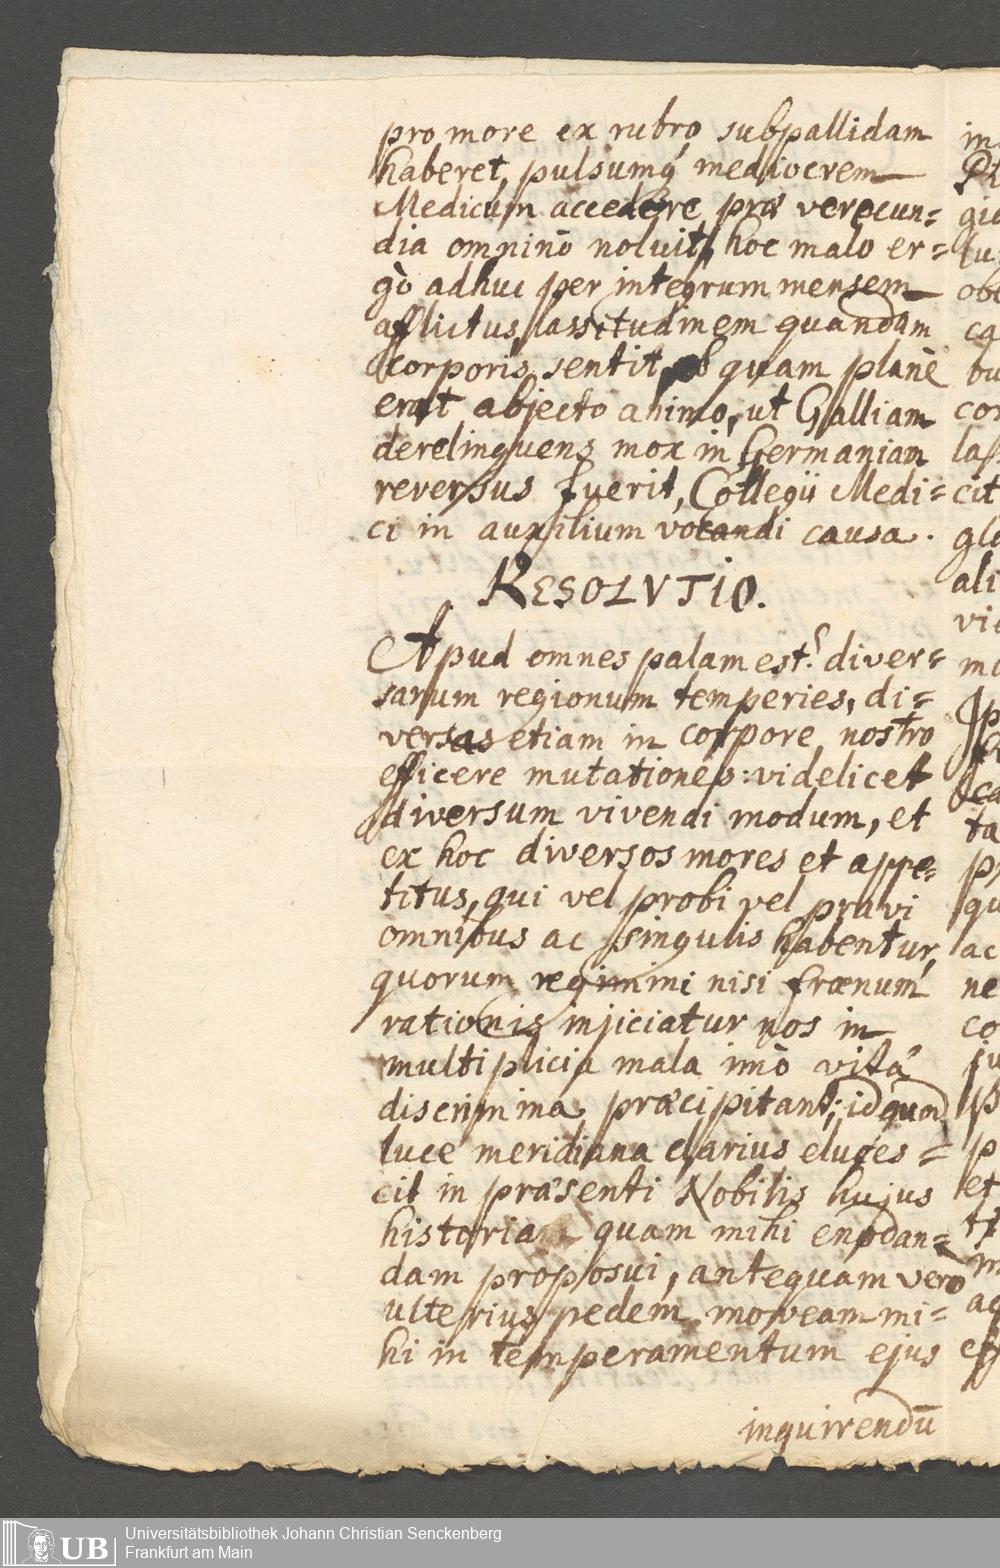 pro more ex rubro subpallidam
haberet, pulsumq́ mediocrem
Medicum accedere præ verecun=
dia omninò noluit, hoc malo er=
gò adhuc per integrum mensem
afflictus, lassitudinem quandam
corporis sentit, ob quam planè
erat abjecto animo, ut Galliam
derelinquens mox in Germaniam
reversus fuerit, Collegii Medi=
ci in auxilium vocandi causa.
RESOLVTIO.
Apud omnes palam est, diver=
sarum regionum temperies, di=
versas etiam in corpore nostro
efficere mutationes: videlicet
diversum vivendi modum, et
ex hoc diversos mores et appe=
titus, qui vel probi vel pravi
omnibus ac singulis habentur,
quorum regimini nisi frœnum
rationis injiciatur nos in
multiplicia mala imò vitæ
discrimina præcipitant; id quod
luce meridiana clarius eluces=
cit in præsenti Nobilis hujus
historia quam mihi enodan=
dam proposui, antequam verò
ulterius pedem moveam mi=
hi in temperamentum ejus
inquirendū
Universitätsbibliothek Johann Christian Senckenberg
UB Frankfurt am Main